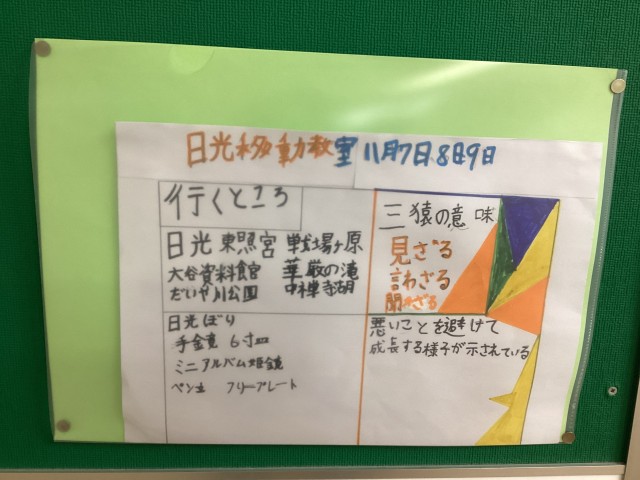 日光移動教室 11月7日8日9日
行くところ
日光東照宮 戦場ヶ原
大谷資料館 華厳の滝
だいや川公園 中禅寺湖
三猿の意味
見ざる
言わざる
聞わざる
日光ぼり
手鏡 6寸皿
ミニアルバム 姫鏡
ペン立 フリープレート
悪いことを避けて
成長する様子が示されている